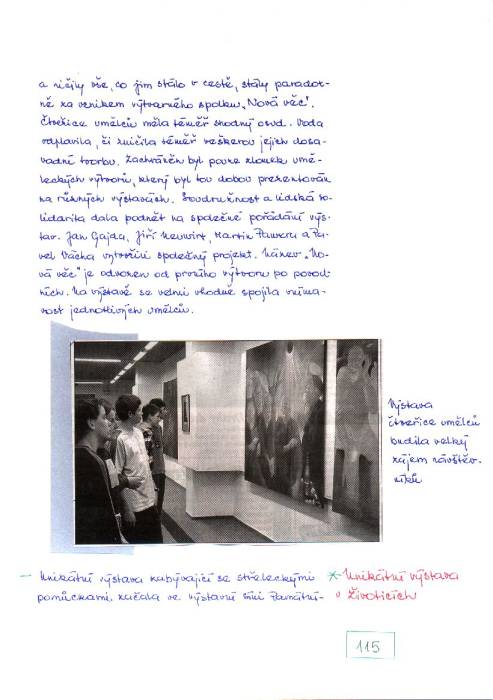 a ničily vše, co jim stálo v cestě, stály paradox-
ně za vznikem výtvarného spolku „Nová věc".
Čtveřice umělců měla téměř shodný osud. Voda
odplavila, či zničila téměř veškerou jejich dosa-
vadní tvorbu. Zachráněn byl pouze zlomek umě-
leckých výtvorů, který byl tou dobou prezentován
na různých výstavách. Soudružnost a lidská so-
lidarita dala podnět na společné pořádání výs-
tav. Jan Gajda, Jiří Neuwirt, Martin Pawera a Pa-
vel Vácha vytvořili společný projekt. Název „No-
vá věc" je odvozen od prvního výtvoru po povod-
ních. Na výstavě se velmi vhodně spojila vníma-
vost jednotlivých umělců.
Výstava
čtveřice umělců
budila velký
zájem návštěv-
níků
- Unikátní výstava zabývající se střeleckými
pomůckami začala ve výstavní síni Památní-
* Unikátní výstava
v Životicích
115